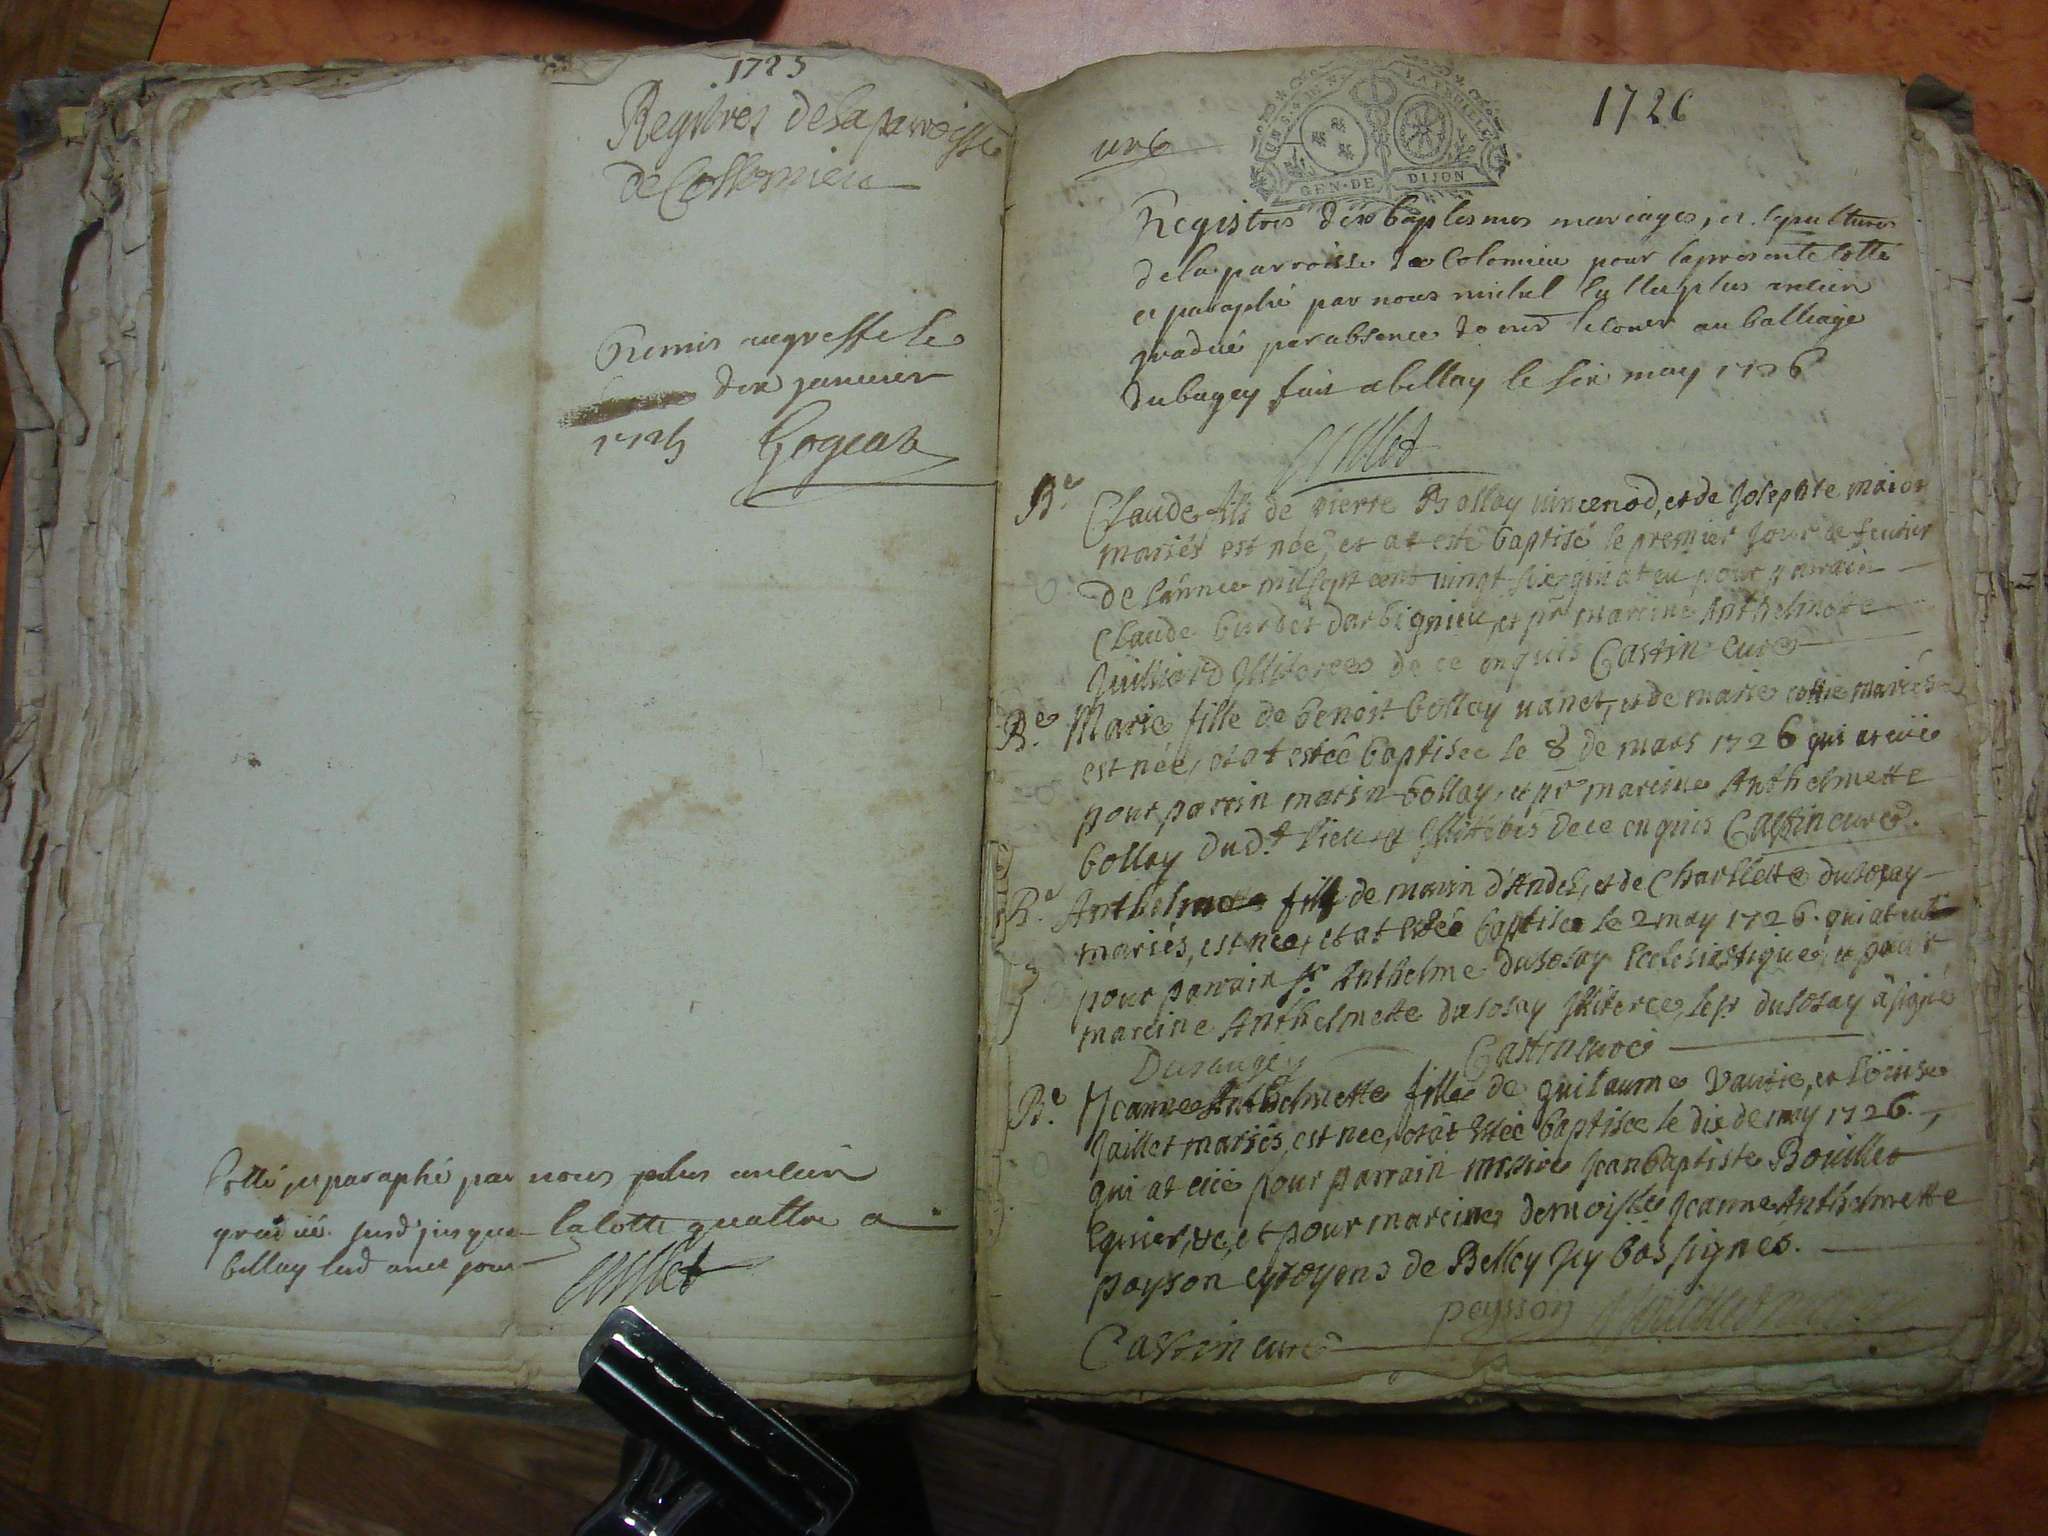 1725
Registres de la parroisse
de Collomieu
Remis au greffe le
dix janvier
Cotté et paraphé par nous plus ancien
gradué jusques la cotte quattre a
bellay jour
Cullet
1726
GEN · DE DIJON
Registres des baptesmes mariages, et sepultures
de la parroisse de Colomieu pour la presente cotté
et paraphé par nous michel plus ancien
gradué par absence de au balliage
du bugey fait a bellay le six may 1726
Cullet
Be Claude fils de pierre Bollay vincenod, et de Josephte maion
mariés est née, et at esté baptisé le premier Jour de feuvrier
de l'année mil sept cent vingt six qui at eu pour parrain
Claude burdet d'arbignieu et pr mareine Anthelmette
Juilliard Illiterees de ce enquis Castin curé
Be Marie fille de benoist bollay vanet, et de marie mariés
est née, et at estée baptisee le 8 de mars 1726 qui at eüe
pour parrin marin bollay, et pr mareine Anthelmette
bollay dud.t lieu de ce enquis Castin curé.
Be Anthelmette fille de marin d'Andel, et de Charllette dusosay
mariés, est née, et at estée baptisee le 2 may 1726. qui at eut
pour parrain sr. Anthelme dusosay Ecclesiastique, et pour
mareine Anthelmette dusosay Illiteree, le sr dusosay a signé
Castin curé
Be Jeanne Anthelmette fille de guilaume Vautie, et Löuise
Jaillet mariés, est nee, et ât estée baptisee le dix de may 1726.
qui at eüe pour parrain messire Jean baptiste Bouillet
et pour mareine demoiselle Jeanne Anthelmette
payson cytoyens de Belley Icy bas signés.
peysson
Castin curé